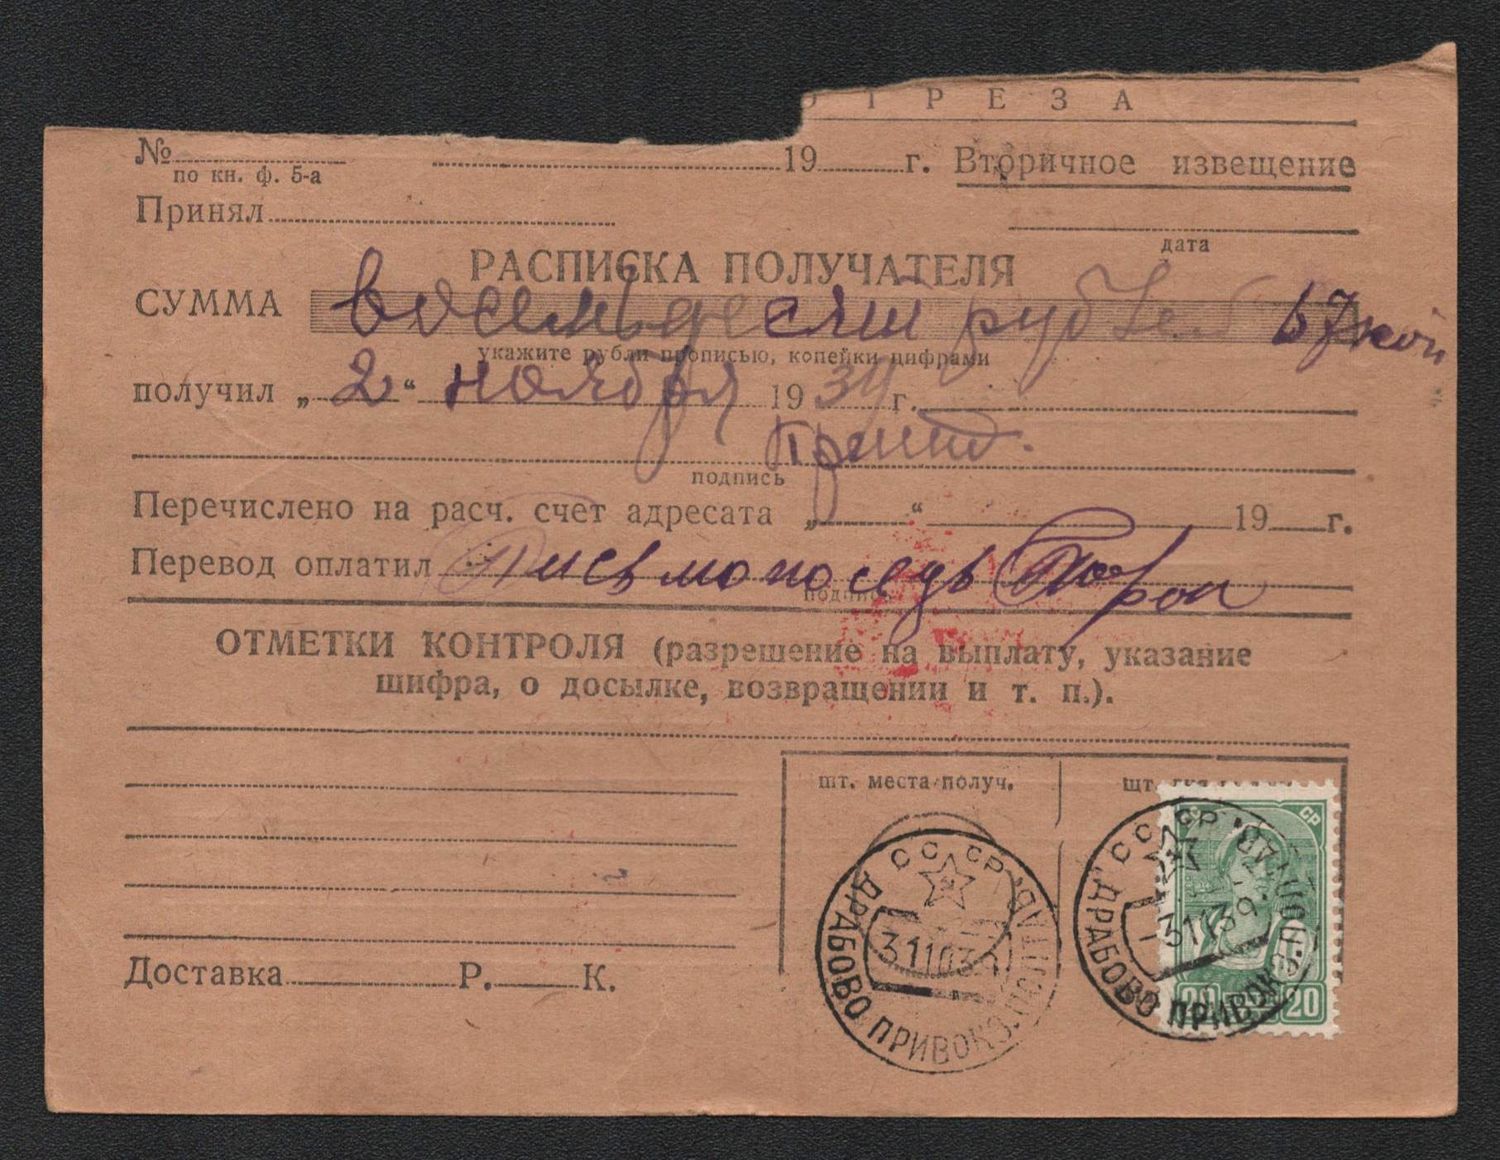 ОТРЕЗА
№ 19 г. Вторичное извещение
по кн. ф. 5-а
Принял
дата
РАСПИСКА ПОЛУЧАТЕЛЯ
СУММА восемьдесят рублей 67 коп
укажите рубли прописью, копейки цифрами
получил „2“ ноября 1939 г.
подпись
Перечислено на расч. счет адресата „ “ 19 г.
Перевод оплатил
подпись
ОТМЕТКИ КОНТРОЛЯ (разрешение на выплату, указание
шифра, о досылке, возвращении и т. п.).
шт. места получ.
СССР
ДРАБОВО ПРИВОКЗ. ПОЧТ.
3 11 39
СССР
ДРАБОВО ПРИВОКЗ.
3 11 39
20 20
Доставка Р. К.